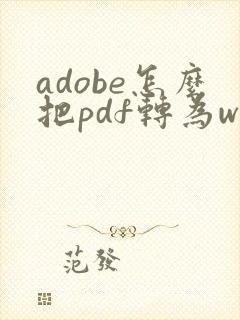 adobe怎麼
把pdf轉為w
范發